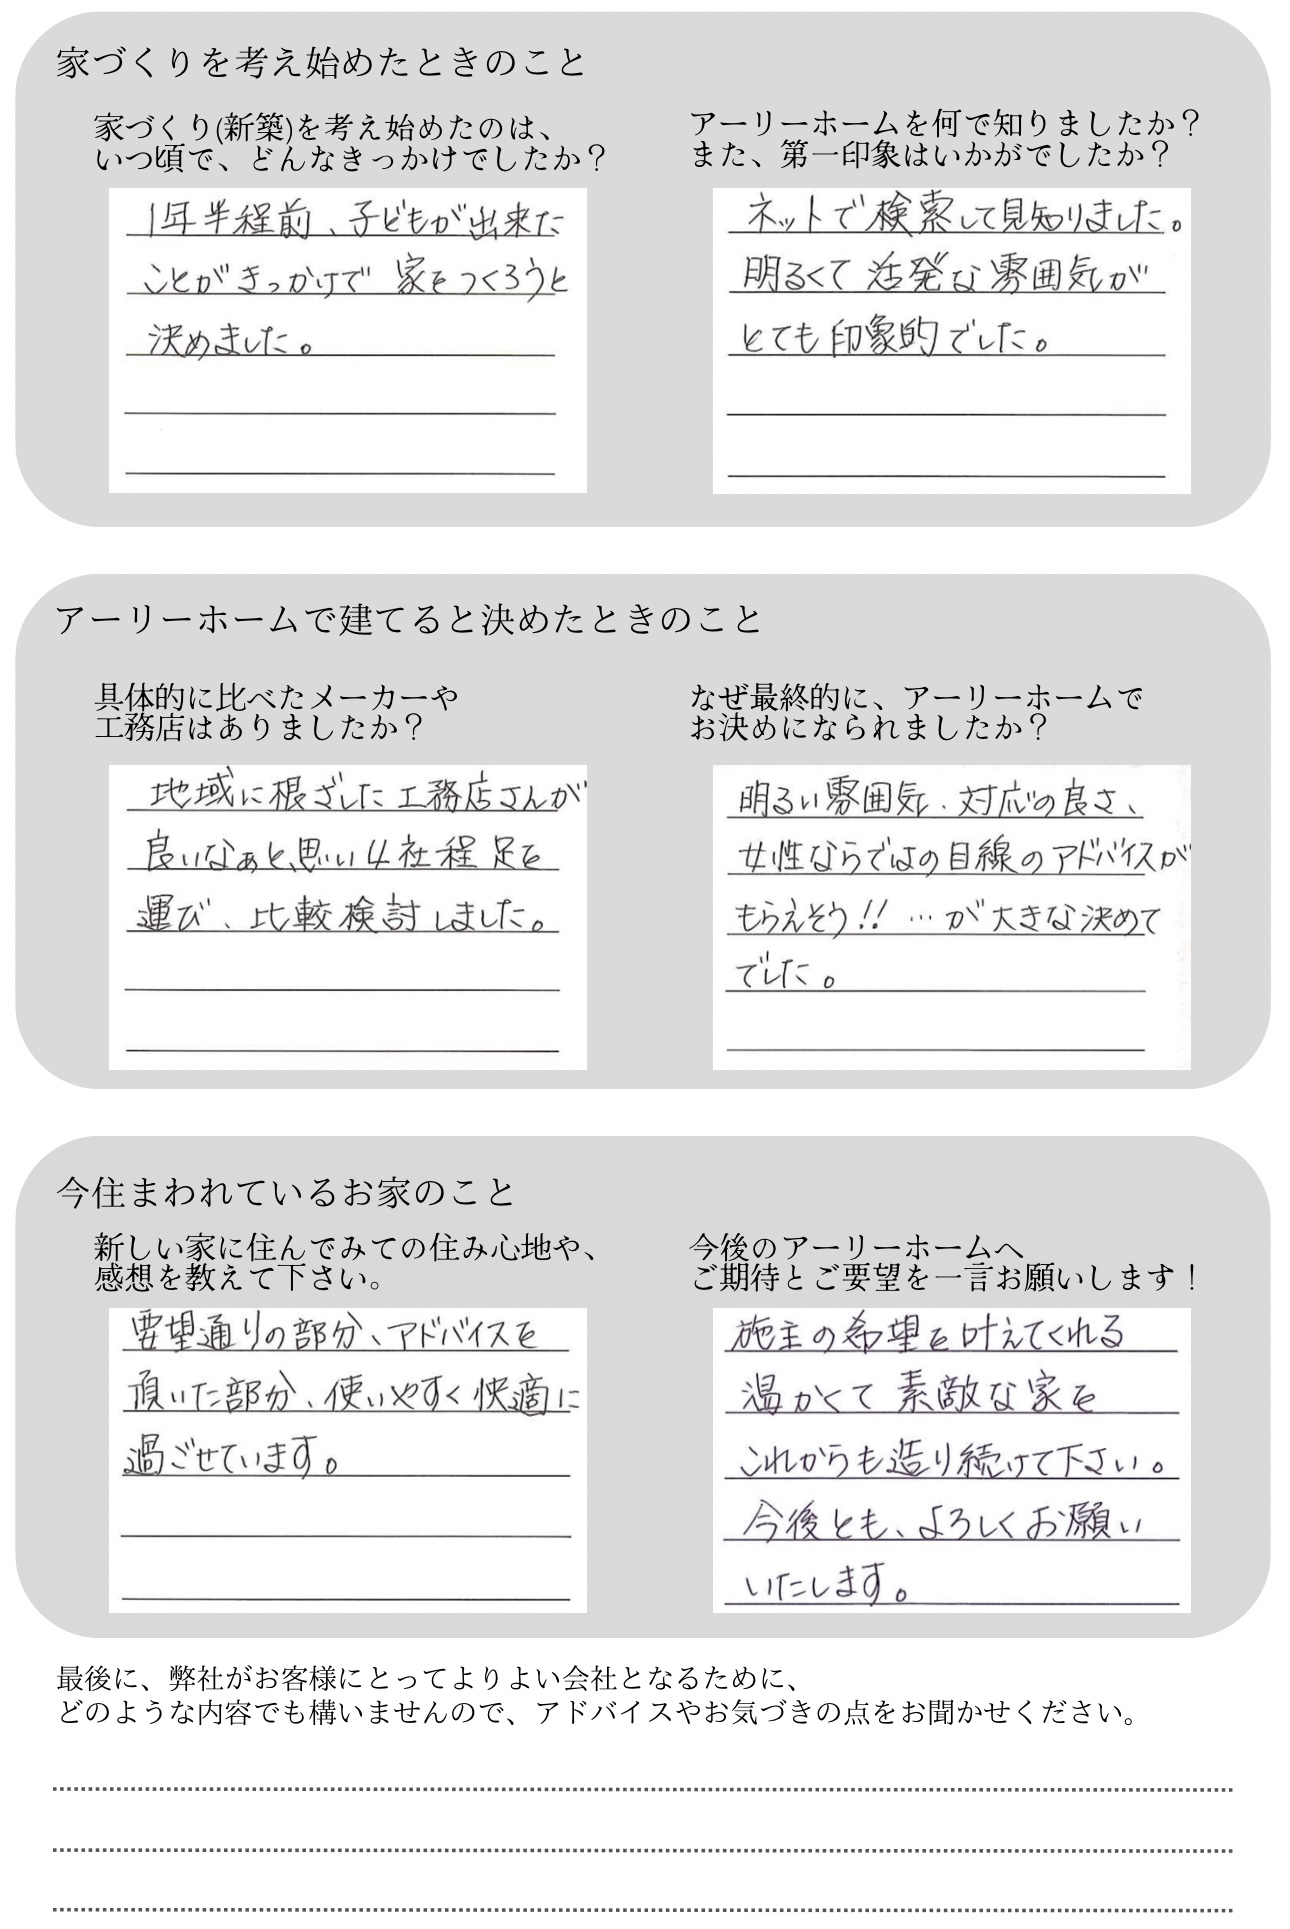 家づくりを考え始めたときのこと
家づくり(新築)を考え始めたのは、
いつ頃で、どんなきっかけでしたか？
1年半程前、子どもが出来た
ことがきっかけで 家をつくろうと
決めました。
アーリーホームを何で知りましたか？
また、第一印象はいかがでしたか？
ネットで検索して見知りました。
明るくて活発な雰囲気が
とても印象的でした。
アーリーホームで建てると決めたときのこと
具体的に比べたメーカーや
工務店はありましたか？
地域に根ざした工務店さんが
良いなぁと思い4社程足を
運び、比較検討しました。
なぜ最終的に、アーリーホームで
お決めになられましたか？
明るい雰囲気、対応の良さ、
女性ならではの目線のアドバイスが
もらえそう!! …が大きな決めて
でした。
今住まわれているお家のこと
新しい家に住んでみての住み心地や、
感想を教えて下さい。
要望通りの部分、アドバイスを
頂いた部分、使いやすく快適に
過ごせています。
今後のアーリーホームへ
ご期待とご要望を一言お願いします！
施主の希望を叶えてくれる
温かくて素敵な家を
これからも造り続けて下さい。
今後とも、よろしくお願い
いたします。
最後に、弊社がお客様にとってよりよい会社となるために、
どのような内容でも構いませんので、アドバイスやお気づきの点をお聞かせください。